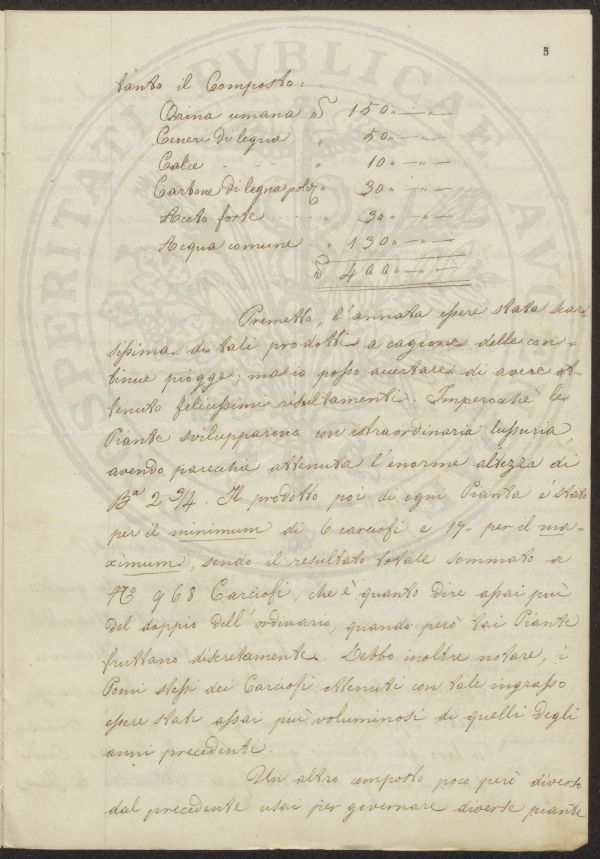 5
tanto il Composto:
Orina umana ℔ 150 „ — „ —
Ceneri di legna „ 50 „ — „ —
Calce „ 10 „ — „ —
Carbone di legna polv. „ 30 „ — „ —
Aceto forte „ 30 „ — „ —
Acqua comune „ 130 „ — „ —
℔ 400 „ — „ —
Premetto, l'annata essere stata scar-
sissima di tali prodotti a cagione delle con-
tinue piogge; ma io posso accertare di avere ot-
tenuto felicissimi risultamenti. Imperocchè le
Piante svilupparono con istraordinaria lussuria,
avendo parecchie ottenuta l'enorme altezza di
Ba 2 3/4. Il prodotto poi di ogni Pianta è stato
per il minimum di 6 carciofi e 17 „ per il ma-
ximum, sendo il resultato totale sommato a
No 968 Carciofi, che è quanto dire assai più
del doppio dell'ordinario, quando però tai Piante
fruttano discretamente. Debbo inoltre notare, i
Pomi stessi dei Carciofi ottenuti con tale ingrasso
essere stati assai più voluminosi di quelli degli
anni precedenti.
Un altro composto poco però diverso
dal precedente usai per governare diverse piante
SPERITATI PVBLICAE AVO